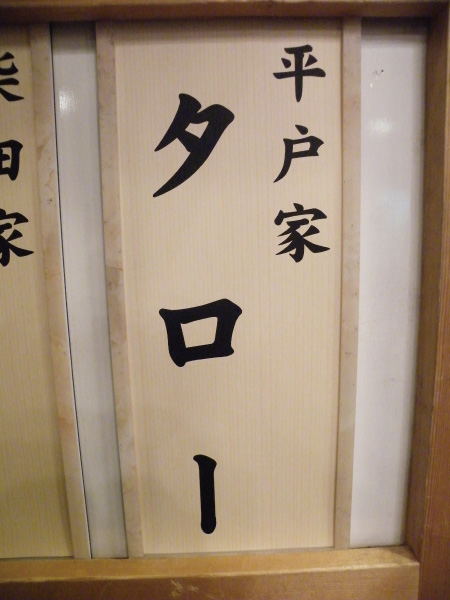 平戸家
タロー
柴田家